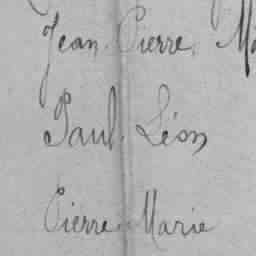 Jean Pierre, Ma
Paul Léon
Pierre Marie